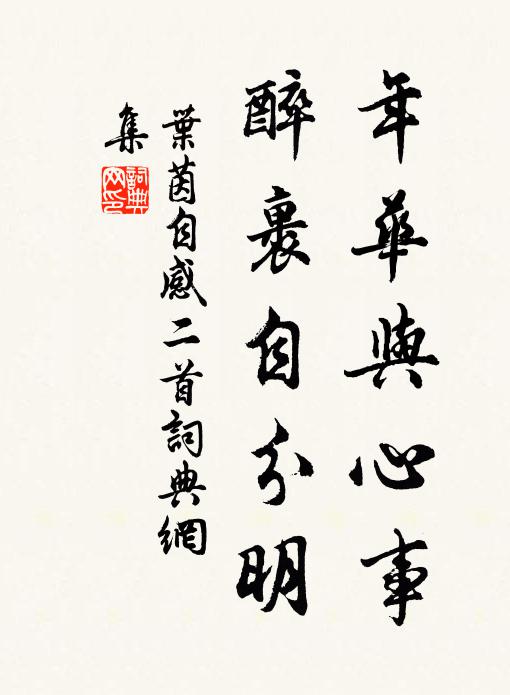 年華與心事
醉裏自分明
葉茵自感二首詞典網
集
詞典網印